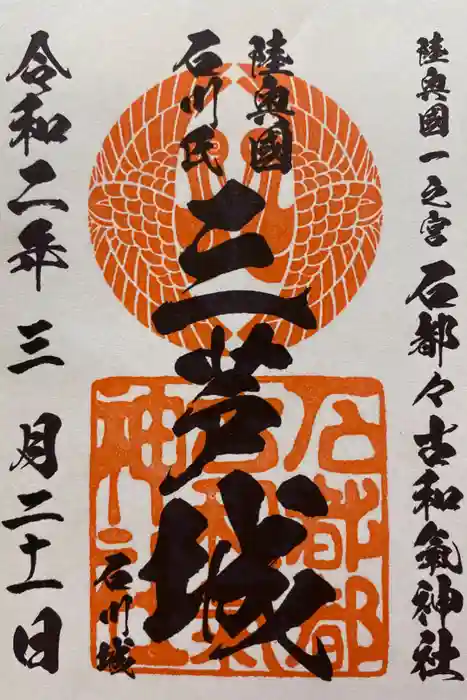 陸奥國一之宮 石都々古和氣神社
陸奥國
石川氏
三芦城
石川城
令和二年 三月二十一日
石都都
古和氣
神社